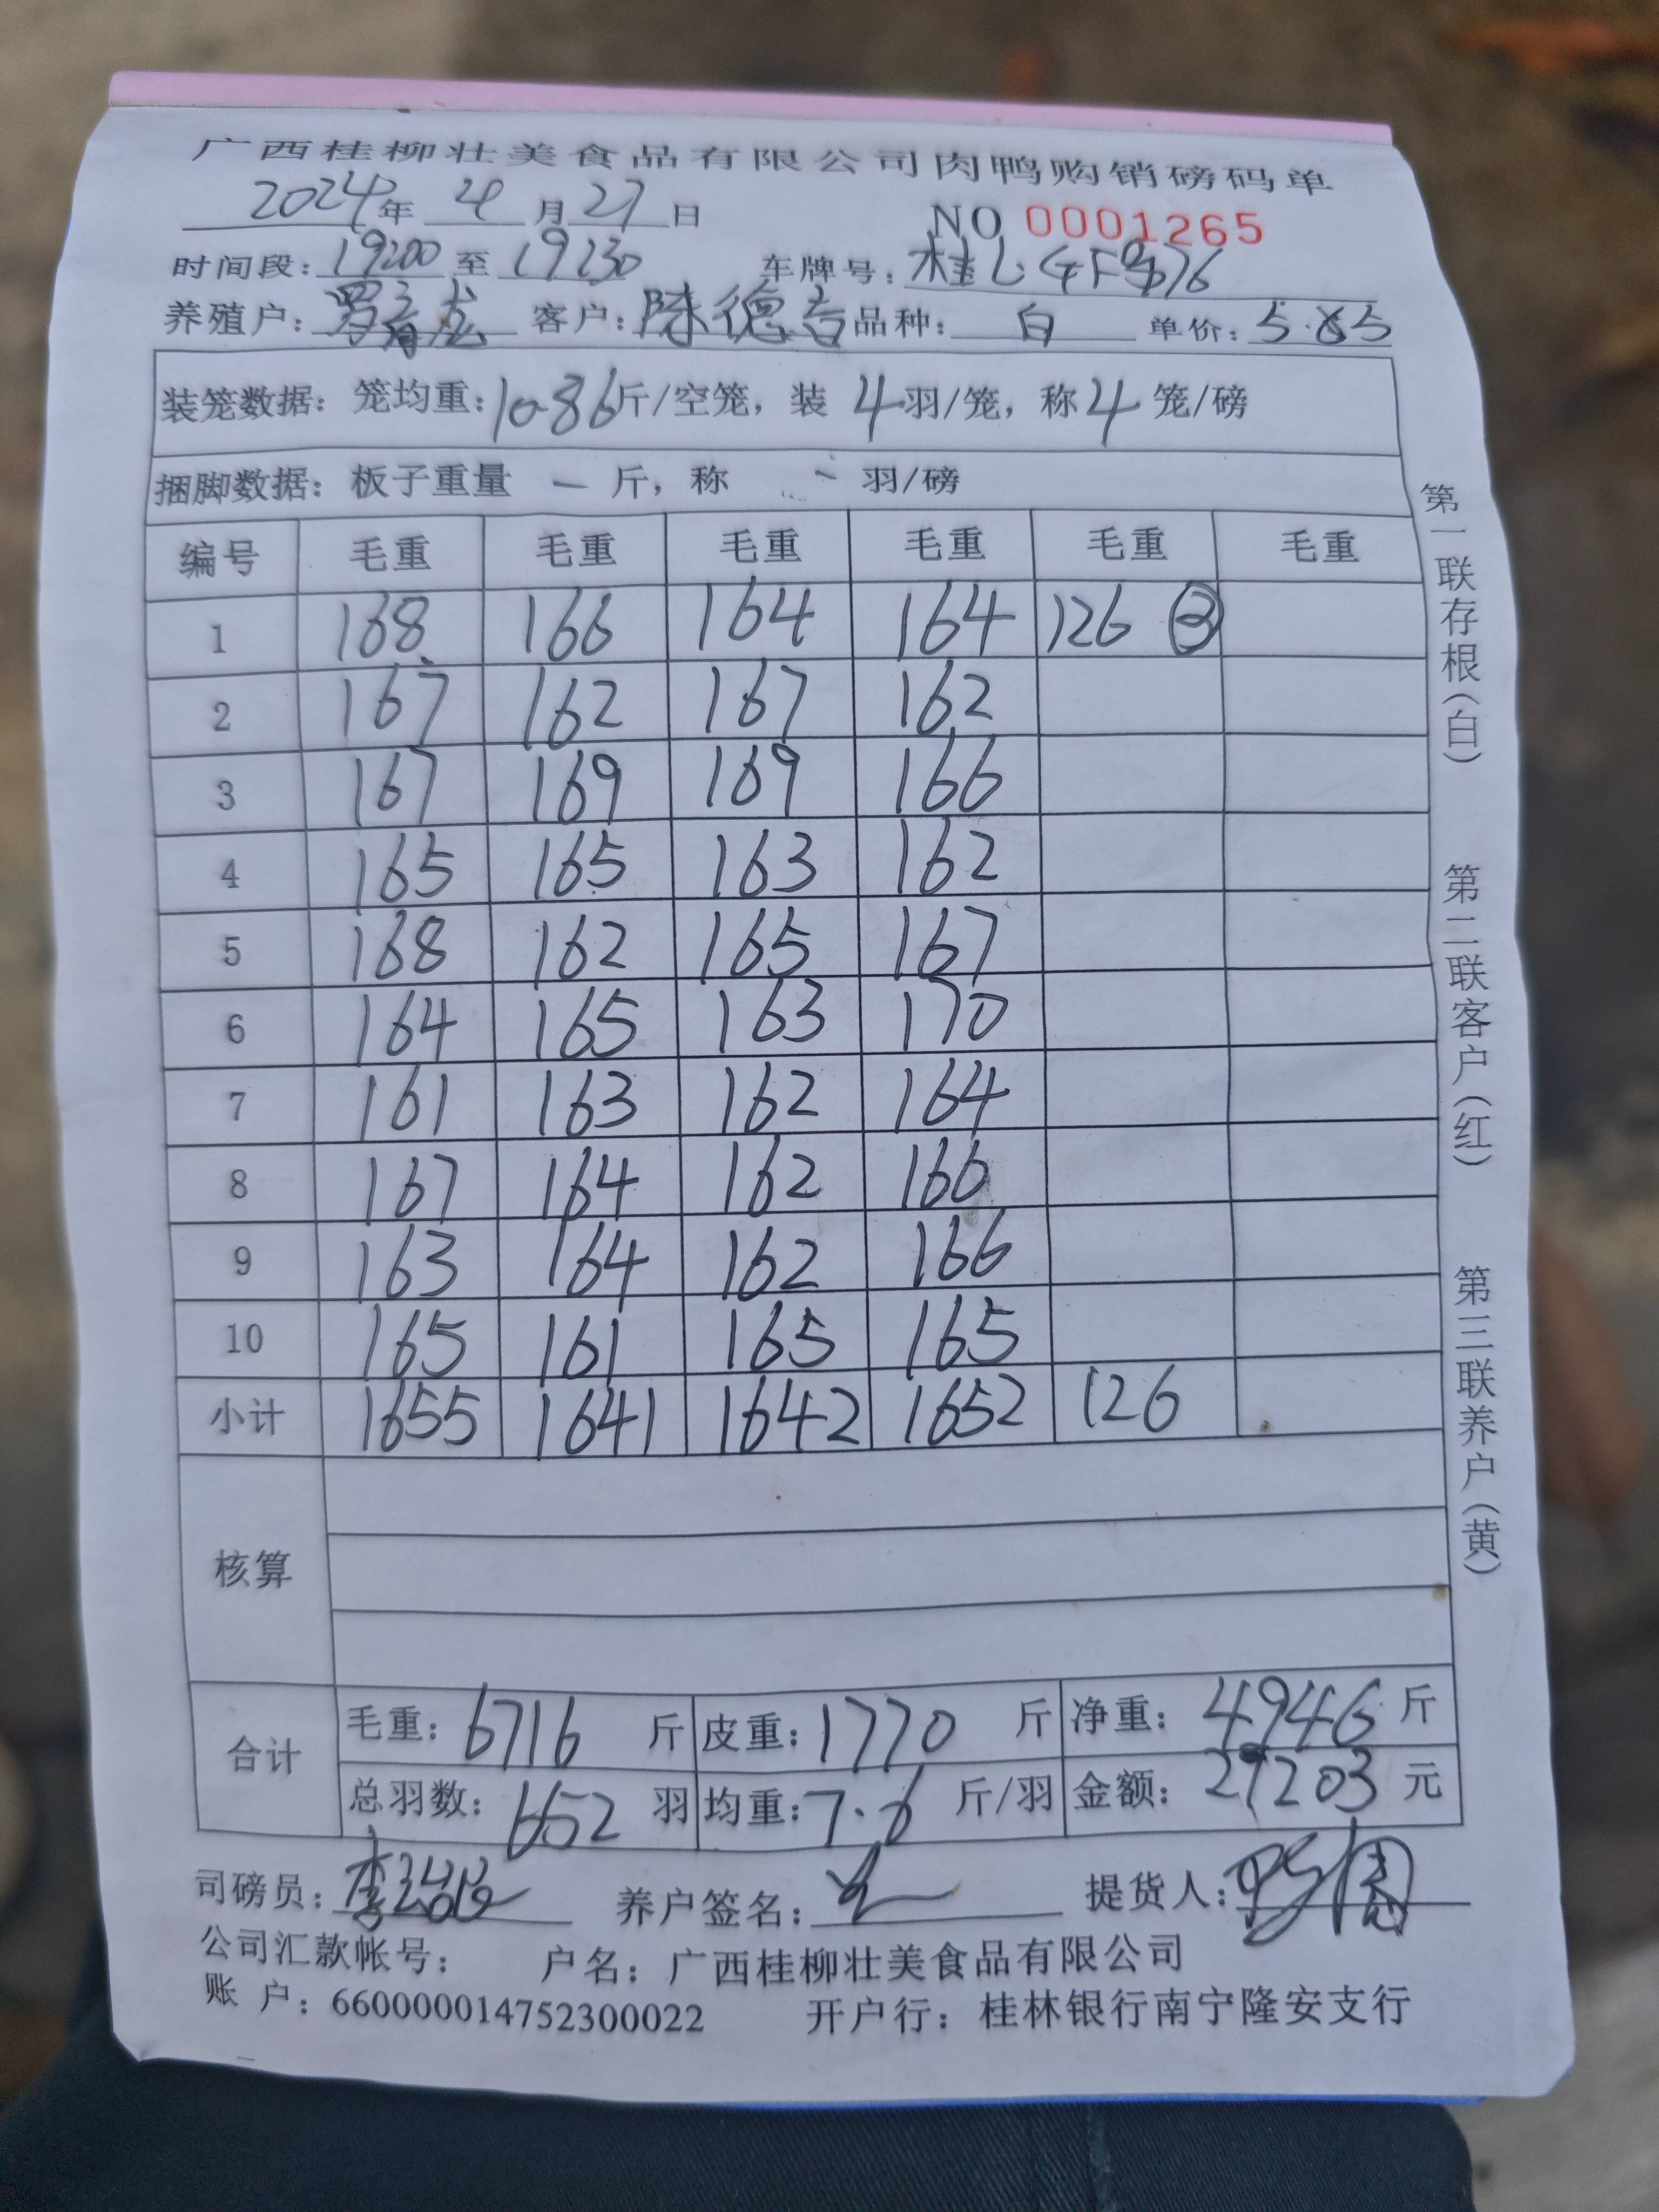 广西桂柳壮美食品有限公司肉鸭购销磅码单
2024年 4月27日 NO 0001265
时间段:19:00 至 19:30 车牌号:桂L
养殖户:罗 客户:陈德 品种: 白 单价:5.85
装笼数据:笼均重:10.86斤/空笼,装 4羽/笼,称4笼/磅
捆脚数据:板子重量 — 斤,称 - 羽/磅
编号 毛重 毛重 毛重 毛重 毛重 毛重
1 168 166 164 164 126 ③
2 167 162 167 162
3 167 169 169 166
4 165 165 163 162
5 168 162 165 167
6 164 165 163 170
7 161 163 162 164
8 167 164 162 166
9 163 164 162 166
10 165 161 165 165
小计 1655 1641 1642 1652 126
核算
合计 毛重:6716 斤 皮重:1770 斤 净重:4946斤
总羽数:652 羽 均重:7.6 斤/羽 金额:29203元
司磅员:李 养户签名: 提货人:
公司汇款帐号: 户名:广西桂柳壮美食品有限公司
账 户:660000014752300022 开户行:桂林银行南宁隆安支行
第一联存根(白) 第二联客户(红) 第三联养户(黄)